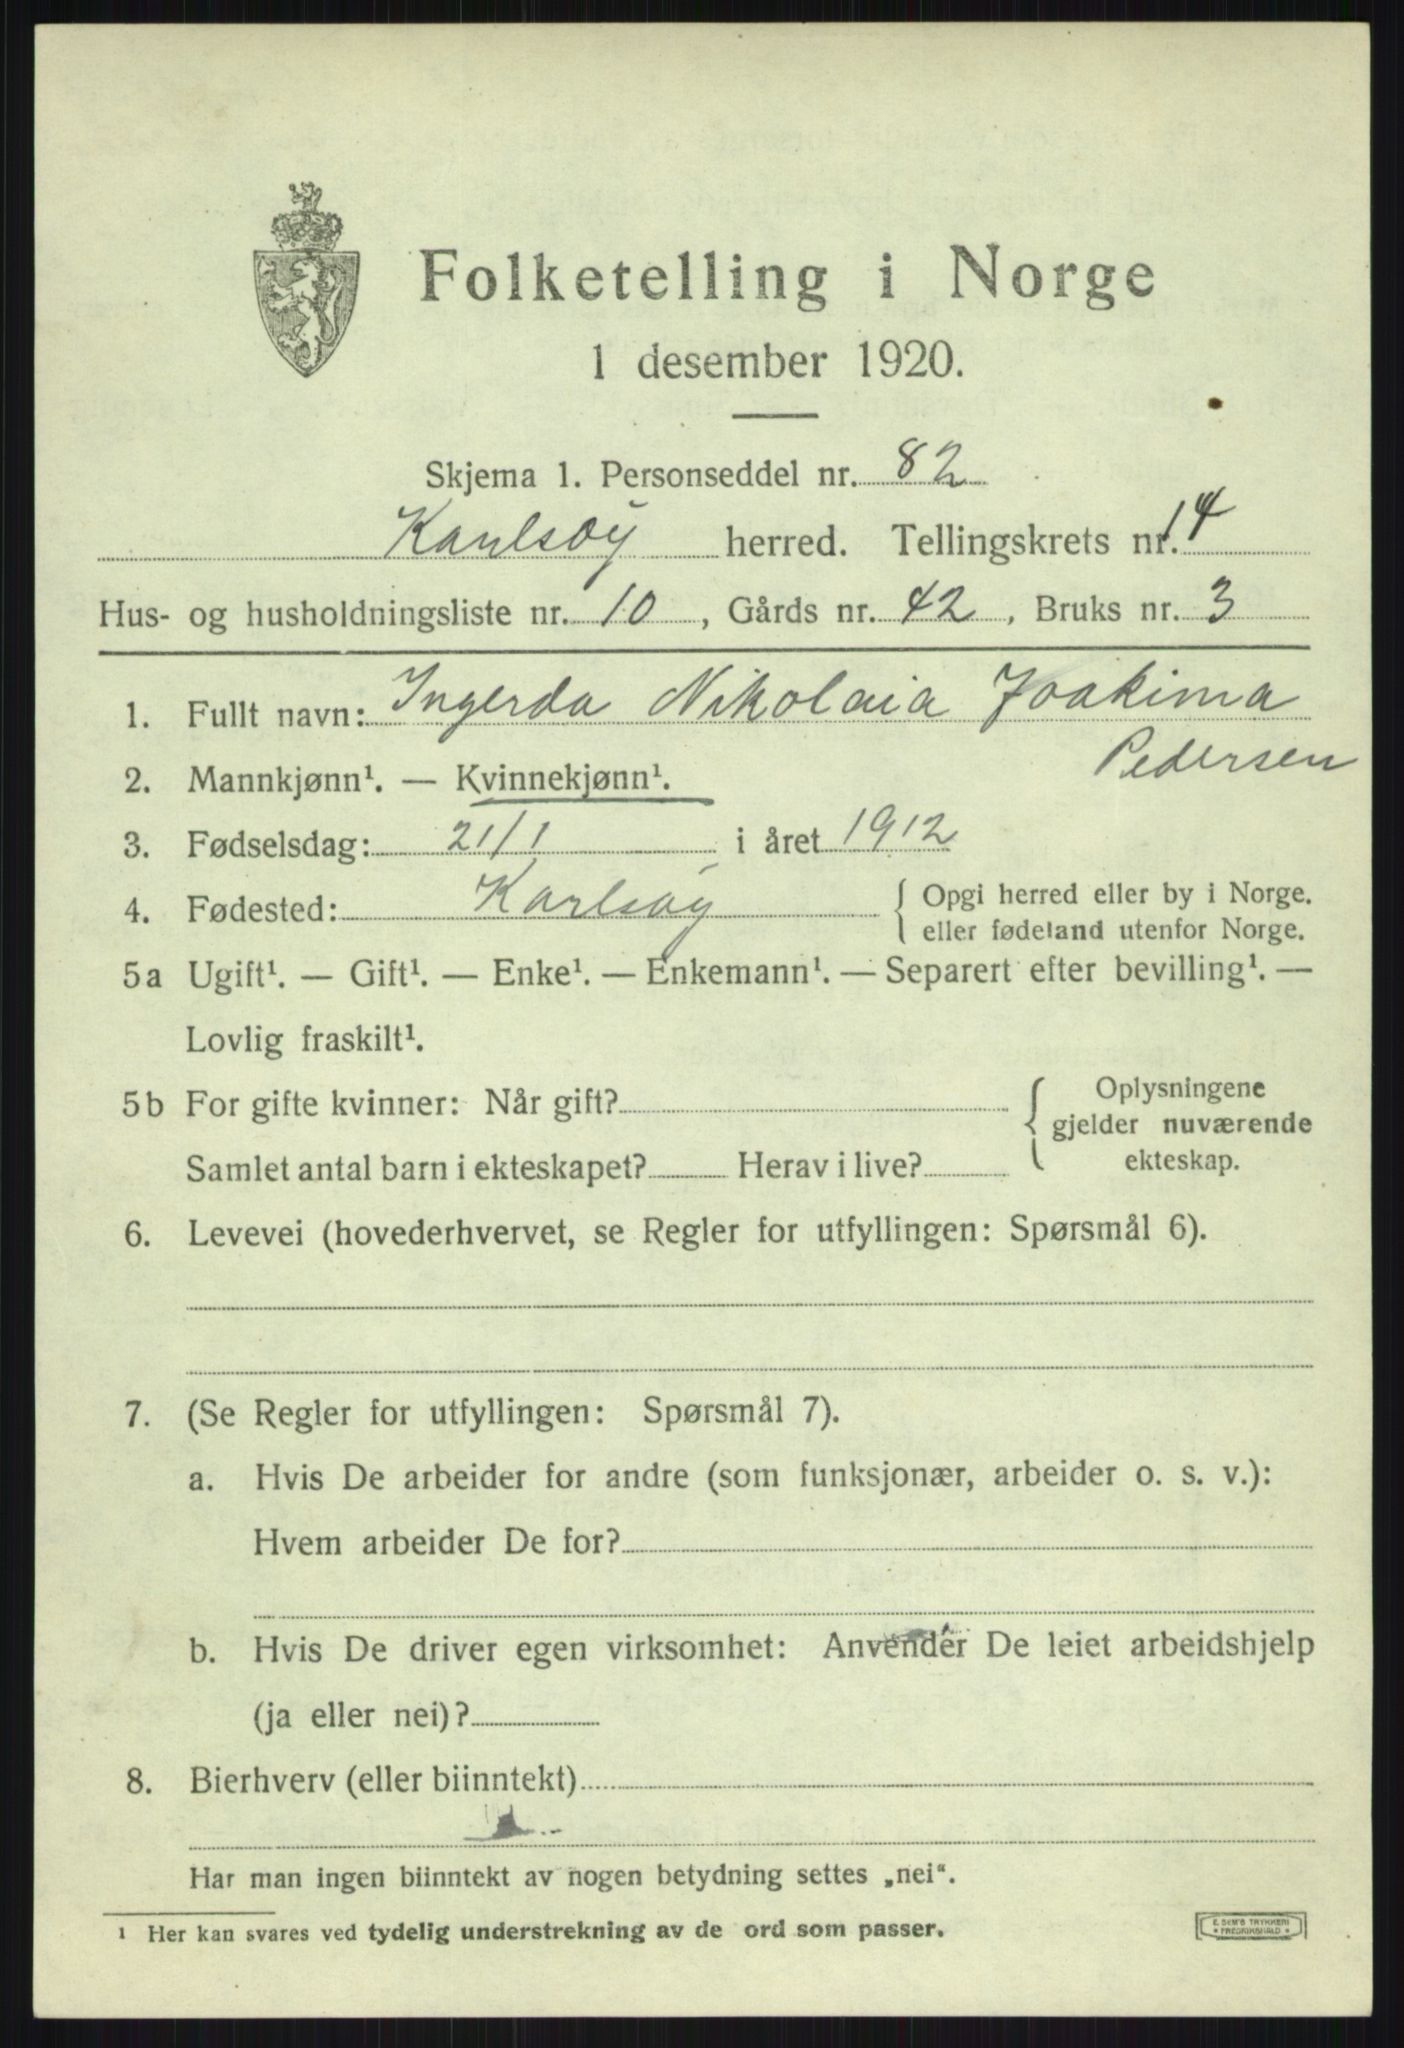 Folketelling i Norge
1 desember 1920.
Skjema 1. Personseddel nr. 82
Karlsøy herred. Tellingskrets nr. 14
Hus- og husholdningsliste nr. 10, Gårds nr. 42, Bruks nr. 3
1. Fullt navn: Ingerda Nikolaia Joakima
Pedersen
2. Mannkjønn¹. — Kvinnekjønn¹.
3. Fødselsdag: 21/1 i året 1912
4. Fødested: Karlsøy { Opgi herred eller by i Norge.
eller fødeland utenfor Norge.
5a Ugift¹. — Gift¹. — Enke¹. — Enkemann¹. — Separert efter bevilling¹. —
Lovlig fraskilt¹.
5b For gifte kvinner: Når gift? { Oplysningene
gjelder nuværende
Samlet antal barn i ekteskapet? Herav i live? ekteskap.
6. Levevei (hovederhvervet, se Regler for utfyllingen: Spørsmål 6).
7. (Se Regler for utfyllingen: Spørsmål 7).
a. Hvis De arbeider for andre (som funksjonær, arbeider o. s. v.):
Hvem arbeider De for?
b. Hvis De driver egen virksomhet: Anvender De leiet arbeidshjelp
(ja eller nei)?
8. Bierhverv (eller biinntekt)
Har man ingen biinntekt av nogen betydning settes „nei“.
¹ Her kan svares ved tydelig understrekning av de ord som passer.
E. SEM'S TRYKKERI
• FREDRIKSHALD •